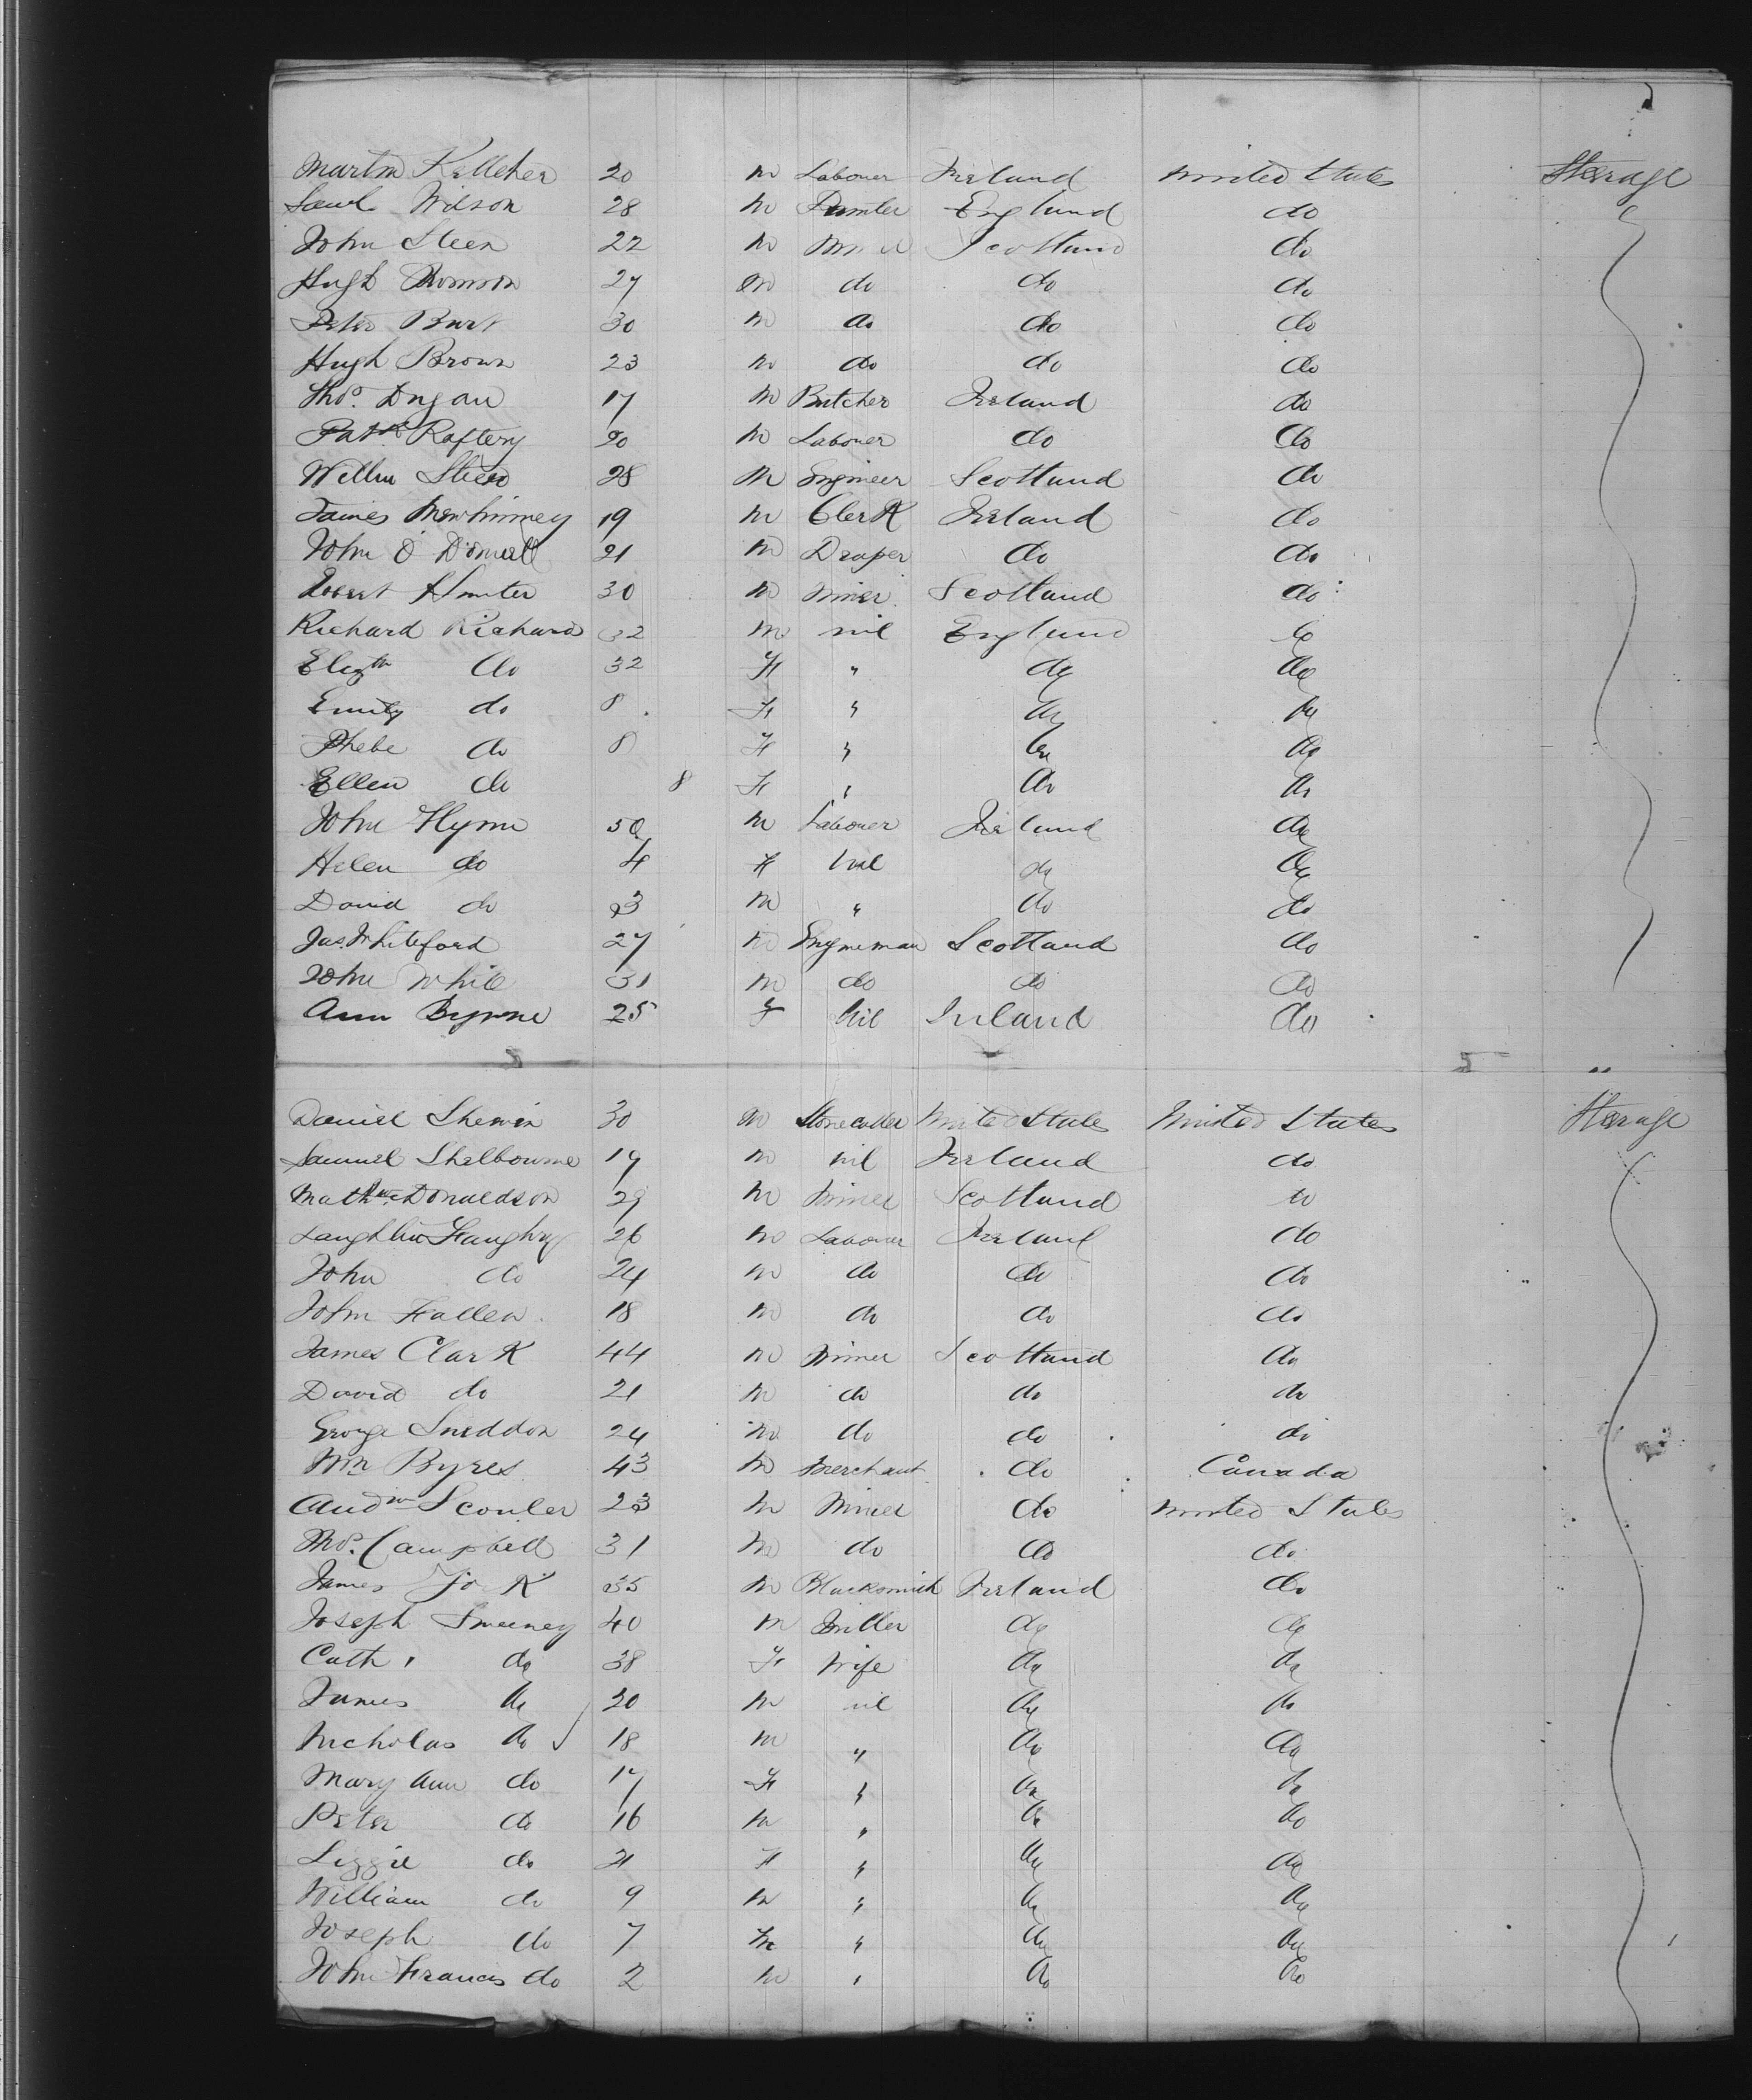 Martin Kelleher 20 m Labourer Ireland United States Steerage
Saml Wilson 28 m England do
John Steen 22 m Miner Scotland do
Hugh Thomson 27 m do do do
Peter Burt 30 m do do do
Hugh Brown 23 m do do do
Thos. Dugan 17 m Butcher Ireland do
Patk Raftery 20 m Labourer do do
Willm Steen 28 m Engineer Scotland do
James Mewhinney 19 m Clerk Ireland do
John O'Donnell 21 m Draper do do
Robert Hunter 30 m Miner Scotland do
Richard Richards 32 m nil England do
Elizth do 32 F " do do
Emily do 8 F " do do
Phebe do 8 F " do do
Ellen do 8 F " do do
John Flynn 50 m Labourer Ireland do
Helen do 4 F nil do do
David do 3 m " do do
Jas. Whiteford 27 m Engineman Scotland do
John White 31 m do do do
Ann Byrne 25 F Nil Ireland do
Daniel Sherwin 30 m Stonecutter United States United States Steerage
Samuel Shelbourne 19 m nil Ireland do
Matthw Donaldson 29 m Miner Scotland do
Laughlin Haughey 26 m Labourer Ireland do
John do 24 m do do do
John Fallen 18 m do do do
James Clark 44 m Miner Scotland do
David do 21 m do do do
George Sneddon 24 m do do do
Wm Byres 43 m Merchant do Canada
Andw Scouler 23 m Miner do United States
Thos. Campbell 31 m do do do
James York 35 m Blacksmith Ireland do
Joseph Sweeney 40 m Miller do do
Cath. do 38 F Wife do do
James do 20 m nil do do
Nicholas do 18 m " do do
Mary Ann do 17 F " do do
Peter do 16 m " do do
Lizzie do F " do do
William do 9 m " do do
Joseph do 7 m " do do
John Francis do 2 m " do do